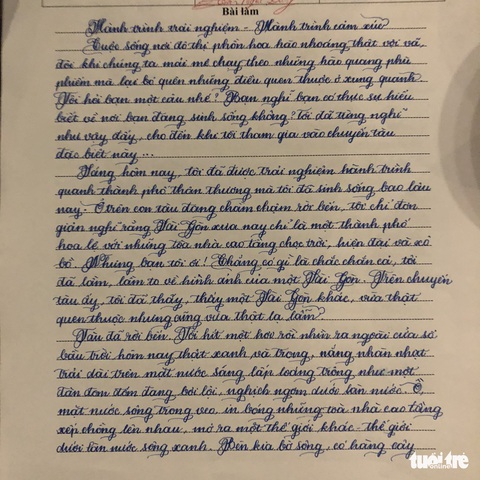 Bài làm
Hành trình trải nghiệm - Hành trình cảm xúc
Cuộc sống nơi đô thị phồn hoa hào nhoáng thật vội vã,
đôi khi chúng ta mải mê chạy theo những hào quang phù
phiếm mà lại bỏ quên những điều quen thuộc ở xung quanh.
Tôi hỏi bạn một câu nhé? Bạn nghĩ bạn có thực sự hiểu
biết về nơi bạn đang sinh sống không? Tôi đã từng nghĩ
như vậy đấy, cho đến khi tôi tham gia vào chuyến tàu
đặc biệt này ...
Sáng hôm nay, tôi đã được trải nghiệm hành trình
quanh thành phố thân thương mà tôi đã sinh sống bao lâu
nay. Ở trên con tàu đang chầm chậm rời bến, tôi chỉ đơn
giản nghĩ rằng Sài Gòn xưa nay chỉ là một thành phố
hoa lệ với những tòa nhà cao tầng chọc trời, hiện đại và xô
bồ. Nhưng bạn tôi ơi! Chẳng có gì là chắc chắn cả, tôi
đã lầm, lầm to về hình ảnh của một Sài Gòn. Trên chuyến
tàu ấy, tôi đã thấy, thấy một Sài Gòn khác, vừa thật
quen thuộc nhưng cũng vừa thật lạ lẫm?
Tàu đã rời bến. Tôi hít một hơi rồi nhìn ra ngoài cửa sổ
bầu trời hôm nay thật xanh và trong, nắng nhàn nhạt
trải dài trên mặt nước sáng lấp loáng trông như một
đàn đom đóm đang bơi lội, nghịch ngợm dưới làn nước. Ồ,
mặt nước sông trong veo, in bóng những toà nhà cao tầng
xếp chồng lên nhau, mở ra một thế giới khác - thế giới
dưới làn nước sông xanh. Bên kia bờ sông, có hàng cây
tuổi trẻ
online